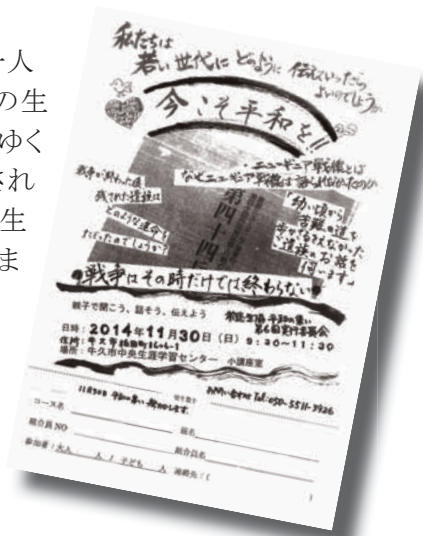 一人
の生
ゆく
され
生
ま
私たちは
若い世代に どのように 伝えていったら
よいのでしょう。
今こそ平和を!!
・ニューギニア戦線とは
なぜニューギニア戦線は語られなかったのか
戦争が終わった後
残された遺族は
どのような運命を
たどったのでしょうか?
第四十四
「幼い頃から
苦難の道を
歩かざるえなかった
ご遺族のお話を
伺います」
戦争はその時だけでは終わらない
親子で聞こう、話そう、伝えよう
平和の集い
第6回実行委員会
日時:2014年11月30日(日)9:30~11:30
住所:牛久市
場所:牛久市中央生涯学習センター 小講座室
お問い合わせ Tel:050-5511-3926
11月30日 平和の集い
コース名
班名
組合員NO
組合員名
参加者:大人 人 / 子ども 人 連絡先:( )